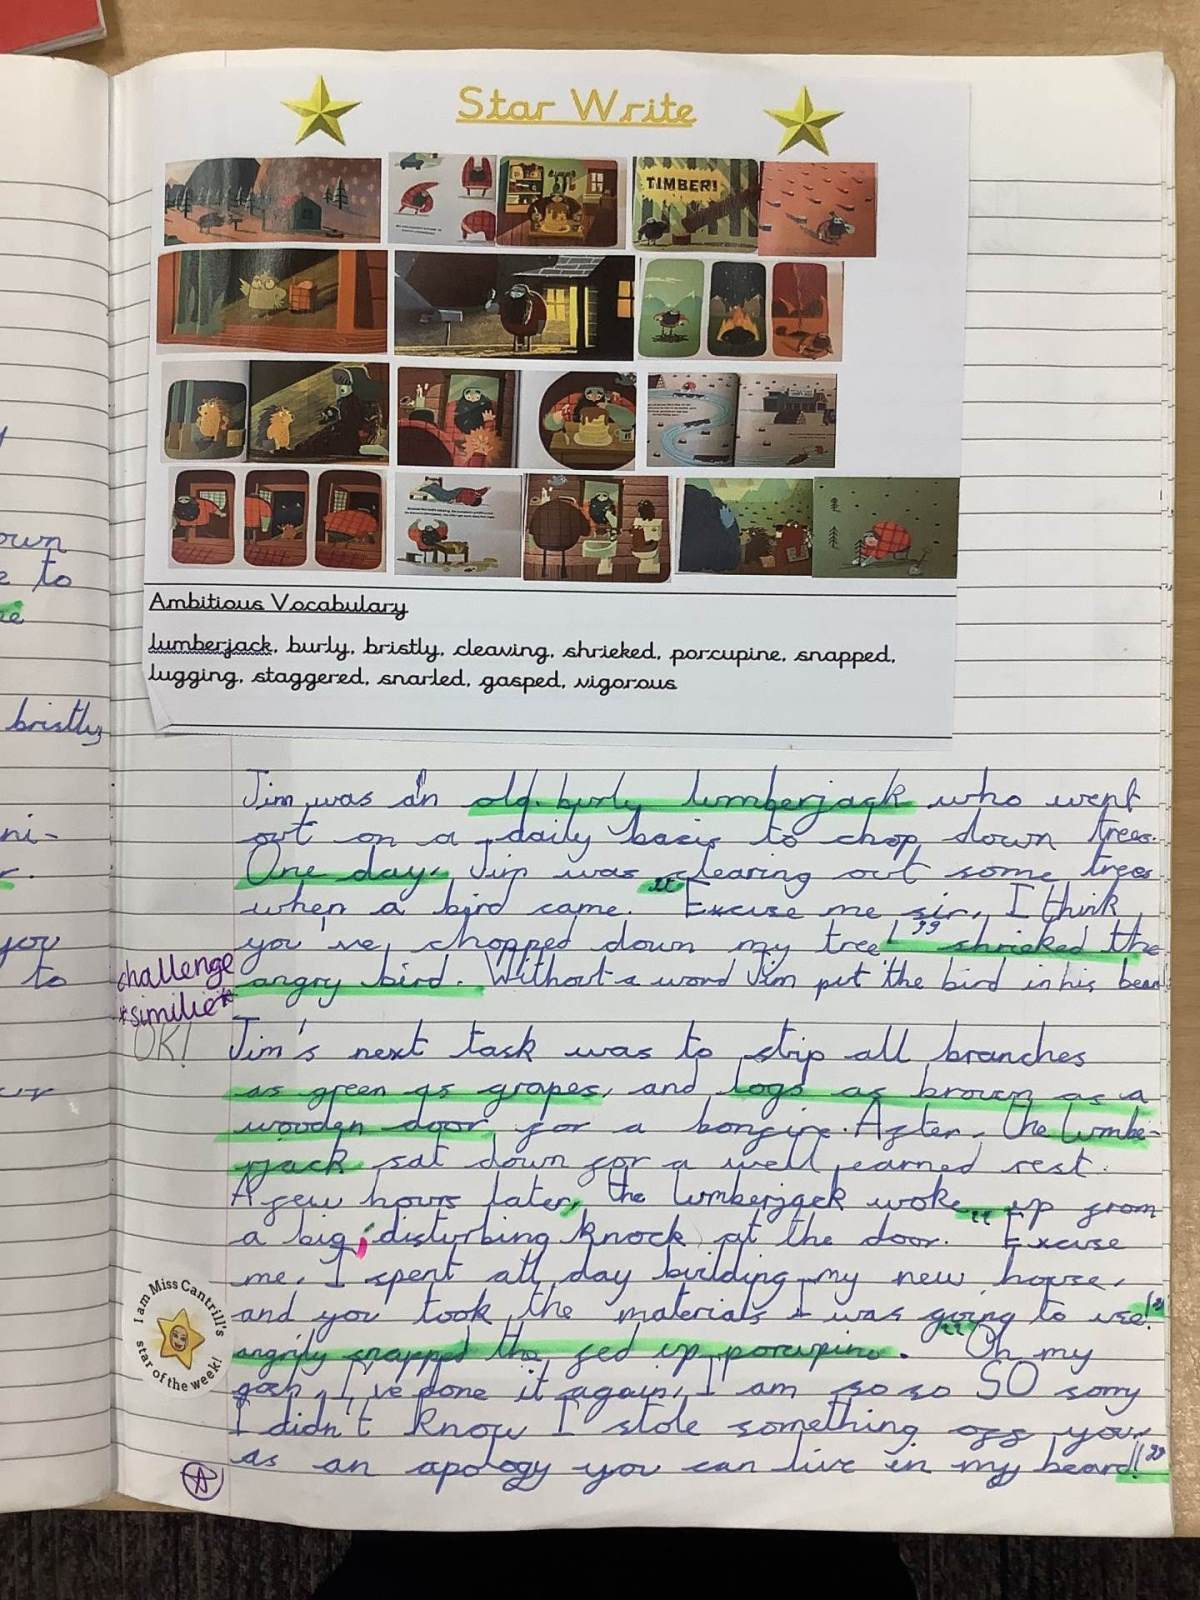 Star Write
TIMBER!
Ambitious Vocabulary
lumberjack, burly, bristly, cleaving, shrieked, porcupine, snapped,
lugging, staggered, snarled, gasped, vigorous
own
to
bristly
ni-
r.
you
to
Jim was an old, burly lumberjack who went
out on a daily basis to chop down trees.
One day, Jim was clearing out some trees
when a bird came. "Excuse me sir, I think
you've chopped down my tree!" shrieked the
angry bird. Without a word Jim put the bird in his beard
challenge
*similie*
OK!
Jim's next task was to strip all branches
as green as grapes, and logs as brown as a
wooden door for a bonfire. After, the lumbe-
rjack sat down for a well earned rest.
A few hours later, the lumberjack woke up from
a big, disturbing knock at the door. "Excuse
me, I spent all day building my new house,
and you took the materials I was going to use!"
angrily snapped the fed up porcupine. "Oh my
gosh, I've done it again, I am so so SO sorry
I didn't know I stole something off you,
as an apology you can live in my beard!"
I am Miss Cantrill's
star of the week!
A